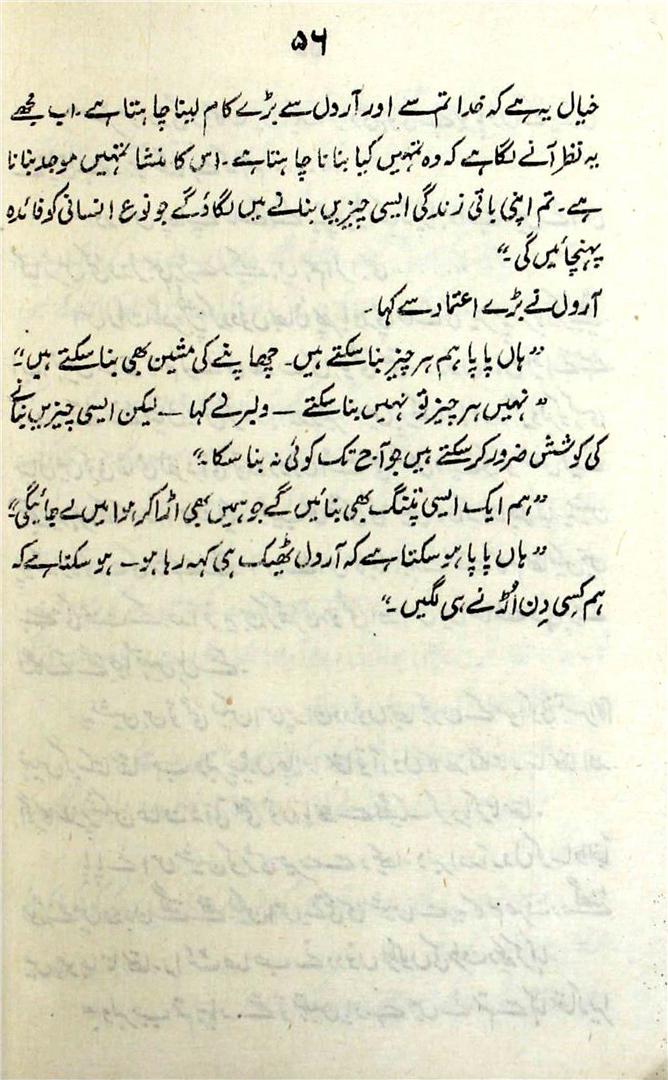 ۵۶
خیال یہ ہے کہ خدا تم سے اور آرول سے بڑے کام لینا چاہتا ہے۔ اب مجھے
یہ نظر آنے لگا ہے کہ وہ تمہیں کیا بنانا چاہتا ہے۔ اس کا منشا تمہیں موجد بنانا
ہے۔ تم اپنی باقی زندگی ایسی چیزیں بنانے میں لگاؤ گے جو نوع انسانی کو فائدہ
پہنچائیں گی۔“
آرول نے بڑے اعتماد سے کہا۔
”ہاں پاپا ہم ہر چیز بنا سکتے ہیں۔ چھاپنے کی مشین بھی بنا سکتے ہیں“
”نہیں ہر چیز تو نہیں بنا سکتے — ولبر نے کہا — لیکن ایسی چیزیں بنانے
کی کوشش ضرور کر سکتے ہیں جو آج تک کوئی نہ بنا سکا۔“
”ہم ایک ایسی پتنگ بھی بنائیں گے جو ہمیں بھی اڑا کر ہوا میں لے جائیگی“
”ہاں پاپا ہو سکتا ہے کہ آرول ٹھیک ہی کہہ رہا ہو۔ ہو سکتا ہے کہ
ہم کسی دِن اُڑنے ہی لگیں۔“